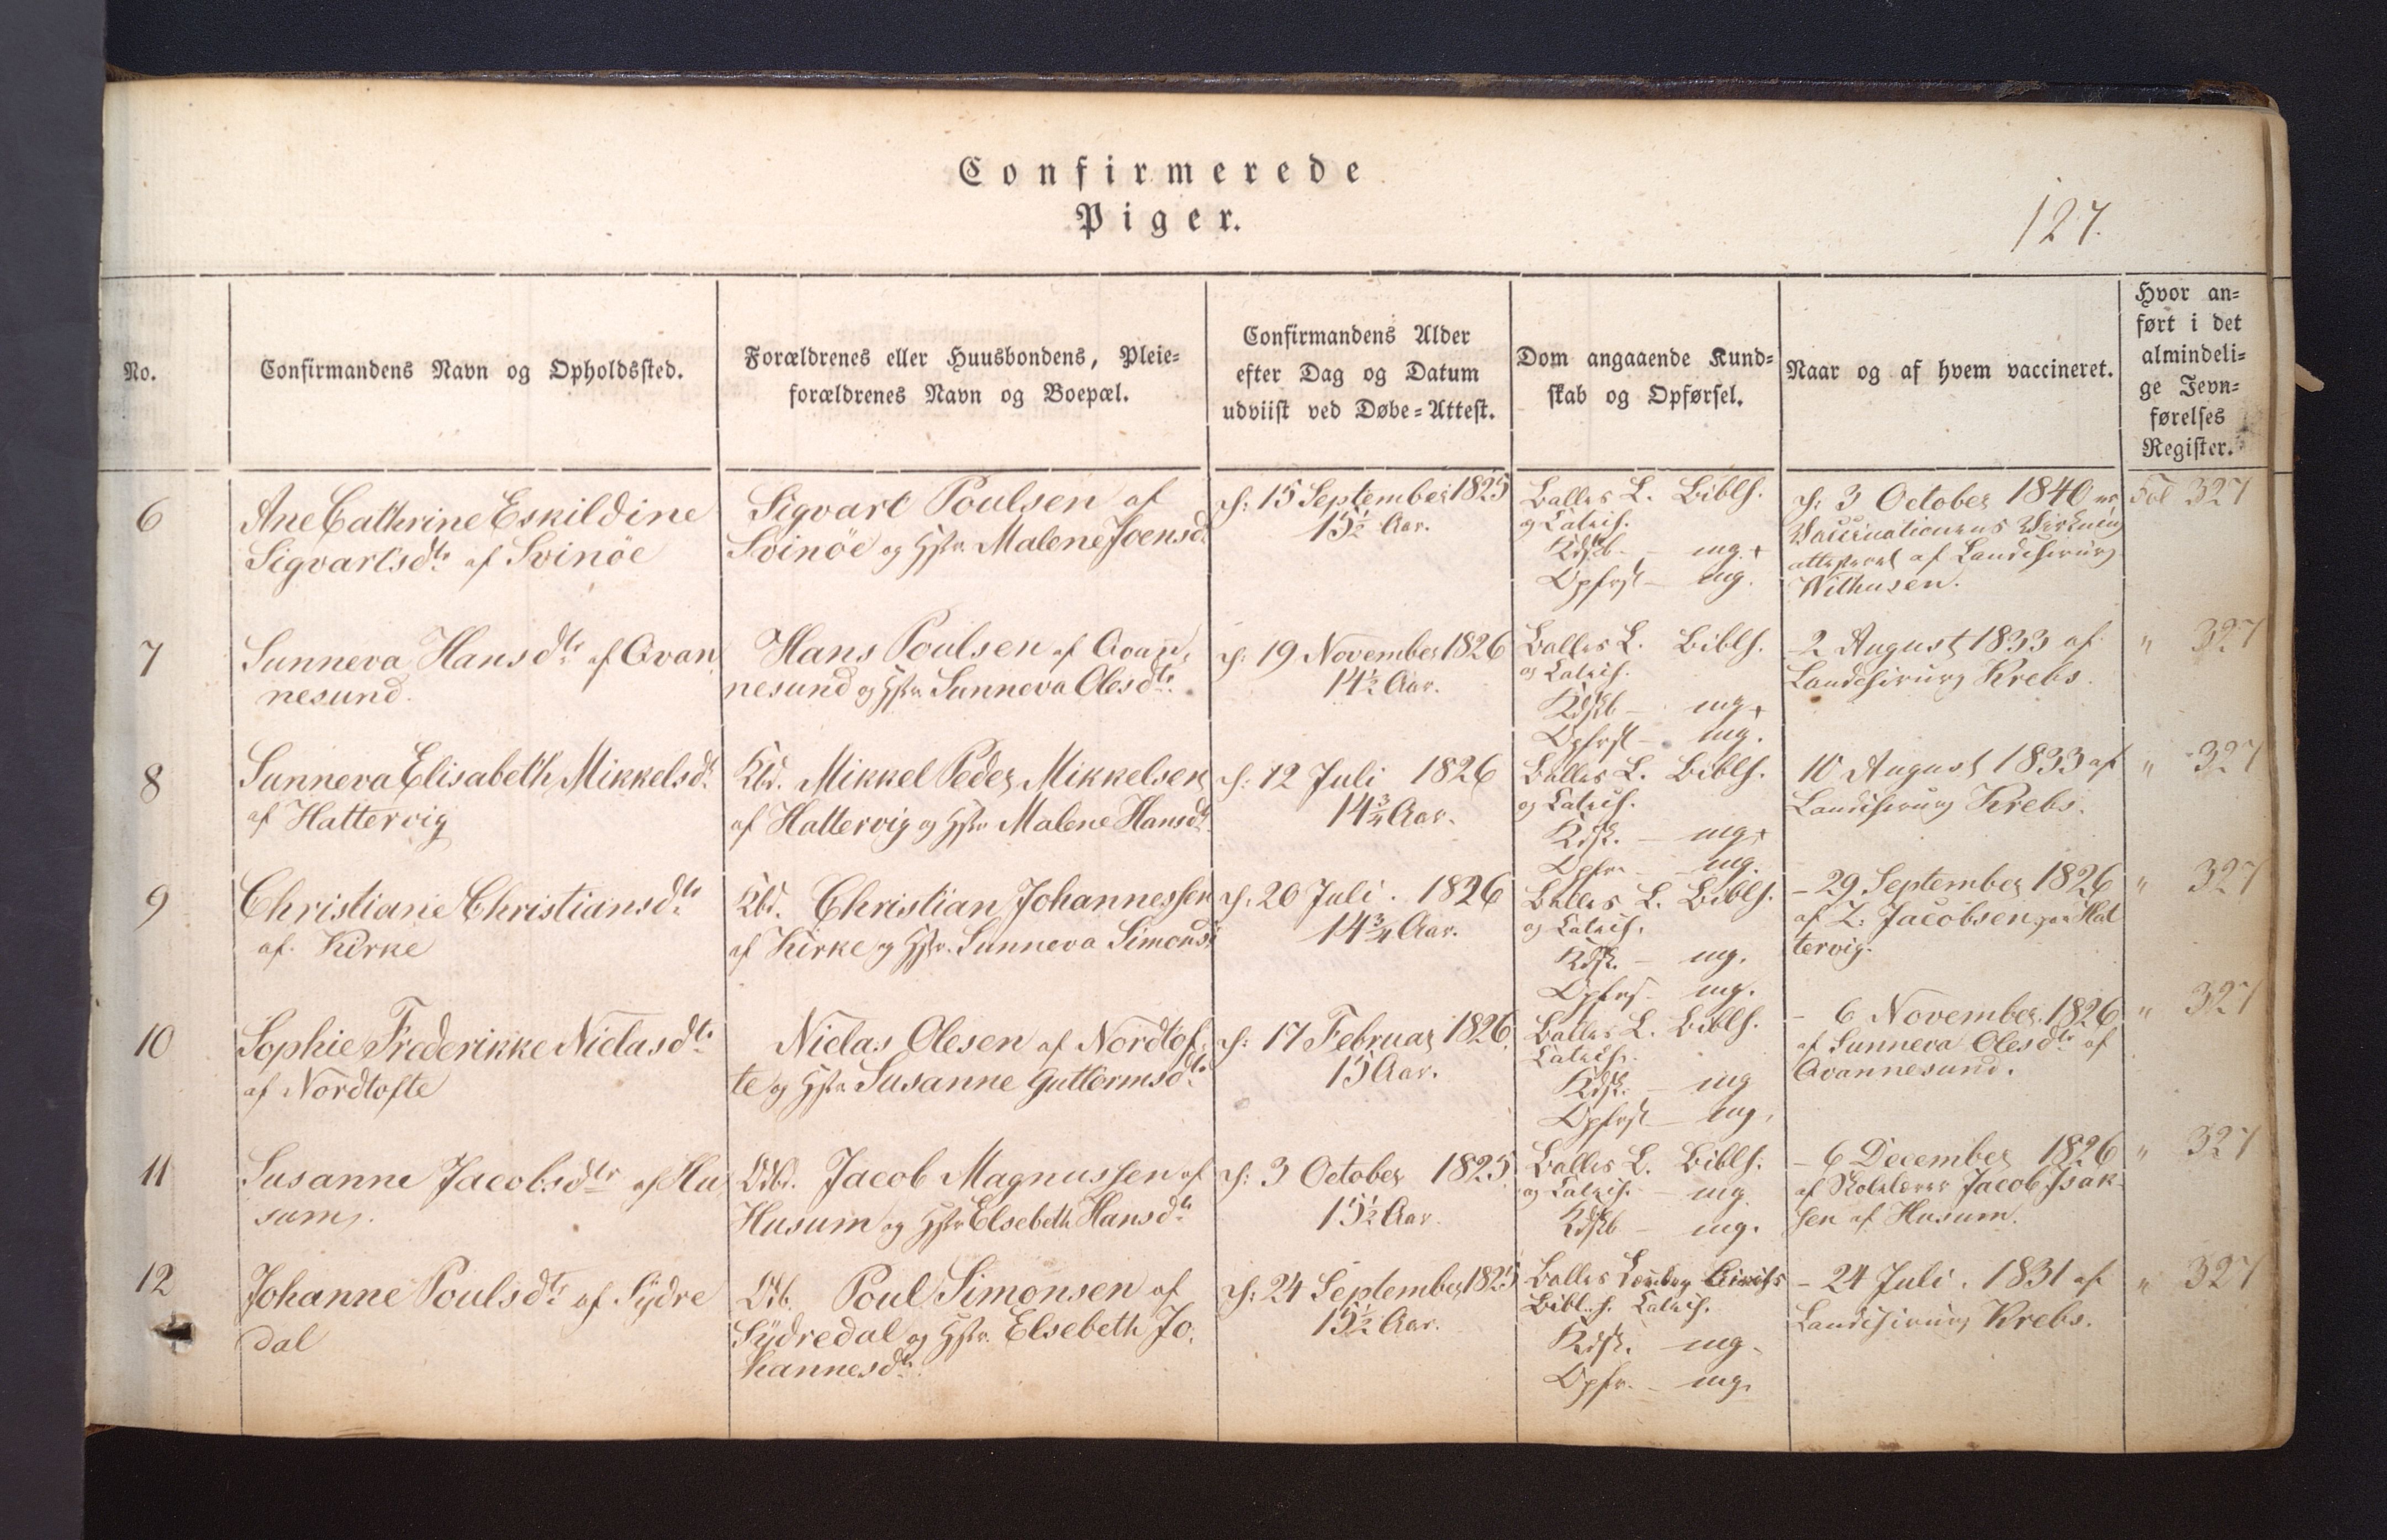 Confirmerede
Piger.
127.
No.
Confirmandens Navn og Opholdssted.
Forældrenes eller Huusbondens, Pleie=
forældrenes Navn og Boepæl.
Confirmandens Alder
efter Dag og Datum
udviist ved Døbe=Attest.
Dom angaaende Kund=
skab og Opførsel.
Naar og af hvem vaccineret.
Hvor an=
ført i det
almindeli=
ge Jevn=
førelses
Register.
6
Ane Cathrine Eskildine
Sigvartsdtr af Svinöe
Sigvart Poulsen af
Svinöe og Hstr. Malene Joensd.
f: 15 September 1825
15½ Aar.
Balles L. Biblh.
og Catech.
Kdskb. - mg. +
Opførsl - mg.
f: 3 October 1840 er
Vaccinationens Virkning
attesteret af Landchirurg
Withusen.
Fol 327
7
Sunneva Hansdtr af Qvan
nesund.
Hans Poulsen af Qvan,
nesund og Hstr. Sunneva Olesdtr.
f: 19 November 1826
14½ Aar.
Balles L. Biblh.
og Catech.
Kdskb - mg +
Opførsl - mg.
- 2 August 1833 af
Landchirurg Krebs.
" 327
8
Sunneva Elisabeth Mikkelsd.
af Hattervig
Kbd. Mikkel Peder Mikkelsen
af Hattervig og Hstr Malene Hansdtr.
f: 12 Juli 1826
14¾ Aar.
Balles L. Biblh.
og Catech.
Kdsk. - mg +
Opfr. - mg.
10 August 1833 af
Landchirurg Krebs.
" 327
9
Christiane Christiansdtr
af Kirke
Kbd. Christian Johannessen
af Kirke og Hstr. Sunneva Simonsd.
f. 20 Juli. 1826
14¾ Aar.
Balles L. Biblh.
og Catech.
Kdsk. - mg.
Opførs. mg.
- 29 September 1826
af Z. Jacobsen paa Hat
tervig.
" 327
10
Sophie Frederikke Nielasdtr
af Nordtofte
Nielas Olesen af Nordtof,
te og Hstr. Susanne Guttormsdtr.
f: 17 Februar 1826.
15 Aar.
Balles L. Biblh.
Catech.
Kdsk. - mg
Opførsl - mg.
- 6 November. 1826
af Sunneva Olesdtr af
Qvannesund.
" 327
11
Susanne Jacobsdtr af Hu
sum.
Odb. Jacob Magnussen af
Husum og Hstr Elsebeth Hansdtr
f: 3 October 1825.
15½ Aar.
Balles L. Biblh.
og Catech. - mg
Kdskb - mg.
- 6 December 1826
af Skolelærer Jacob Isak-
sen af Husum.
" 327
12
Johanne Poulsdtr af Sÿdre
dal
Odb. Poul Simonsen af
Sÿdredal og Hstr. Elsebeth Jo,
hannesdtr.
f: 24 September 1825
15½ Aar.
Balles Lærebog
Bibl. h. Catech.
Kdsk. mg.
Opfr. - mg.
- 24 Juli. 1831 af
Landchirurg Krebs.
" 327